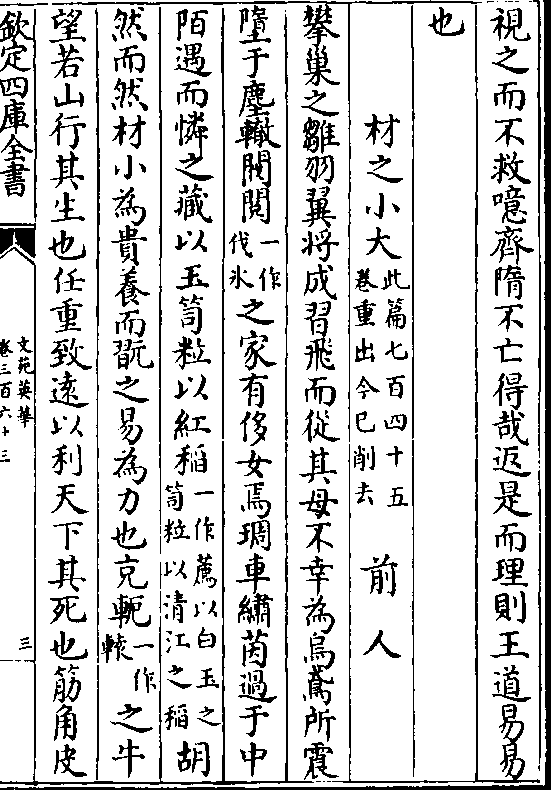 視之而不救噫齊隋不亡得哉返是而理則王道易易
也
材之小大此篇七百四十五卷重出今已削去 前人
攀巢之雛羽翼将成習飛而從其母不幸為烏鳶所震
墮于塵轍閥閲一作伐氷之家有侈女焉琱車繡茵過于中
陌遇而憐之藏以玉笥粒以紅稻一作薦以白玉之笥粒以清江之稻胡
然而然材小為貴養而翫之易為力也克軛一作轅之牛
望若山行其生也任重致遠以利天下其死也筋角皮
欽定四庫全書
文苑英華
卷三百六十三
三